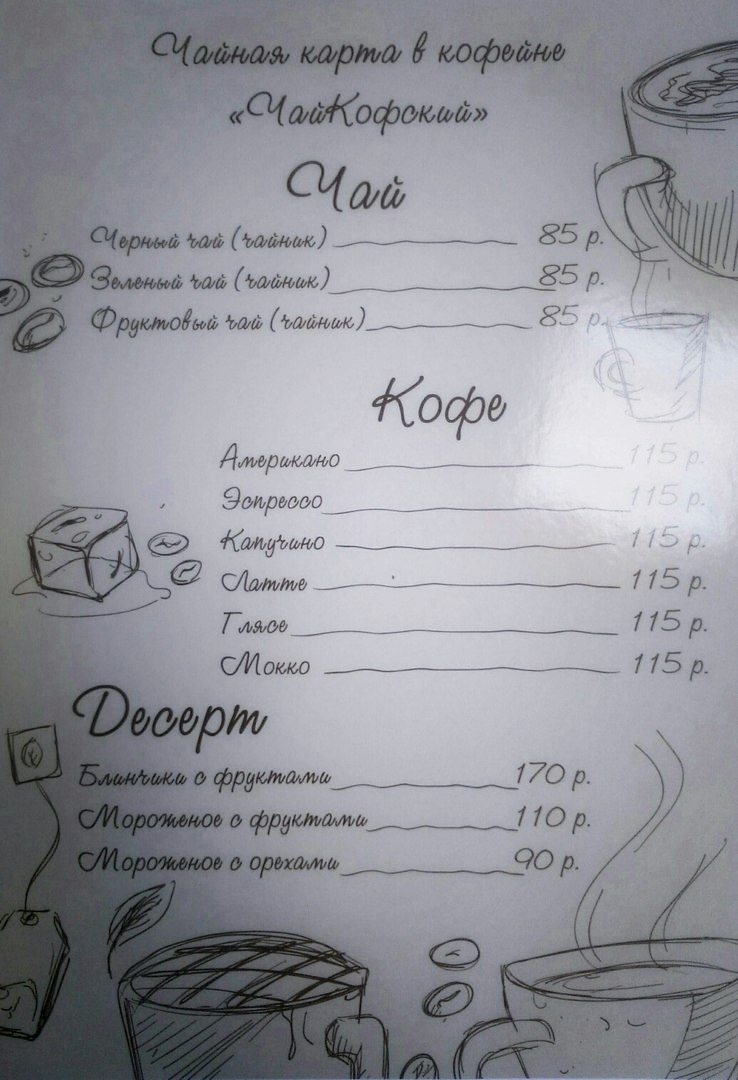 Чайная карта в кофейне
«ЧайКофский»
Чай
Черный чай (чайник) 85 р.
Зеленый чай (чайник) 85 р.
Фруктовый чай (чайник) 85 р.
Кофе
Американо 115 р.
Эспрессо 115 р.
Капучино 115 р.
Латте 115 р.
Глясе 115 р.
Мокко 115 р.
Десерт
Блинчики с фруктами 170 р.
Мороженое с фруктами 110 р.
Мороженое с орехами 90 р.